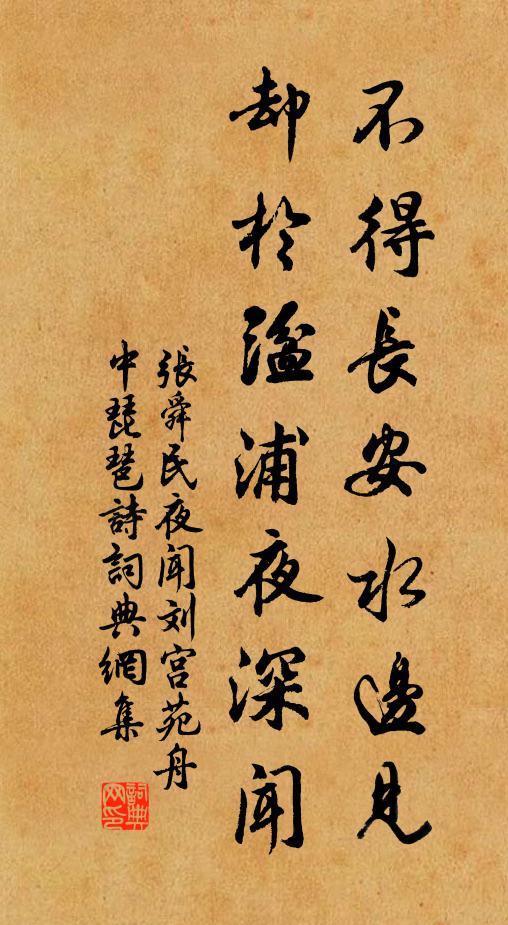 不得長安水邊見
却於湓浦夜深聞
張舜民夜聞刘宫苑舟
中琵琶詩詞典網集
詞典
网印